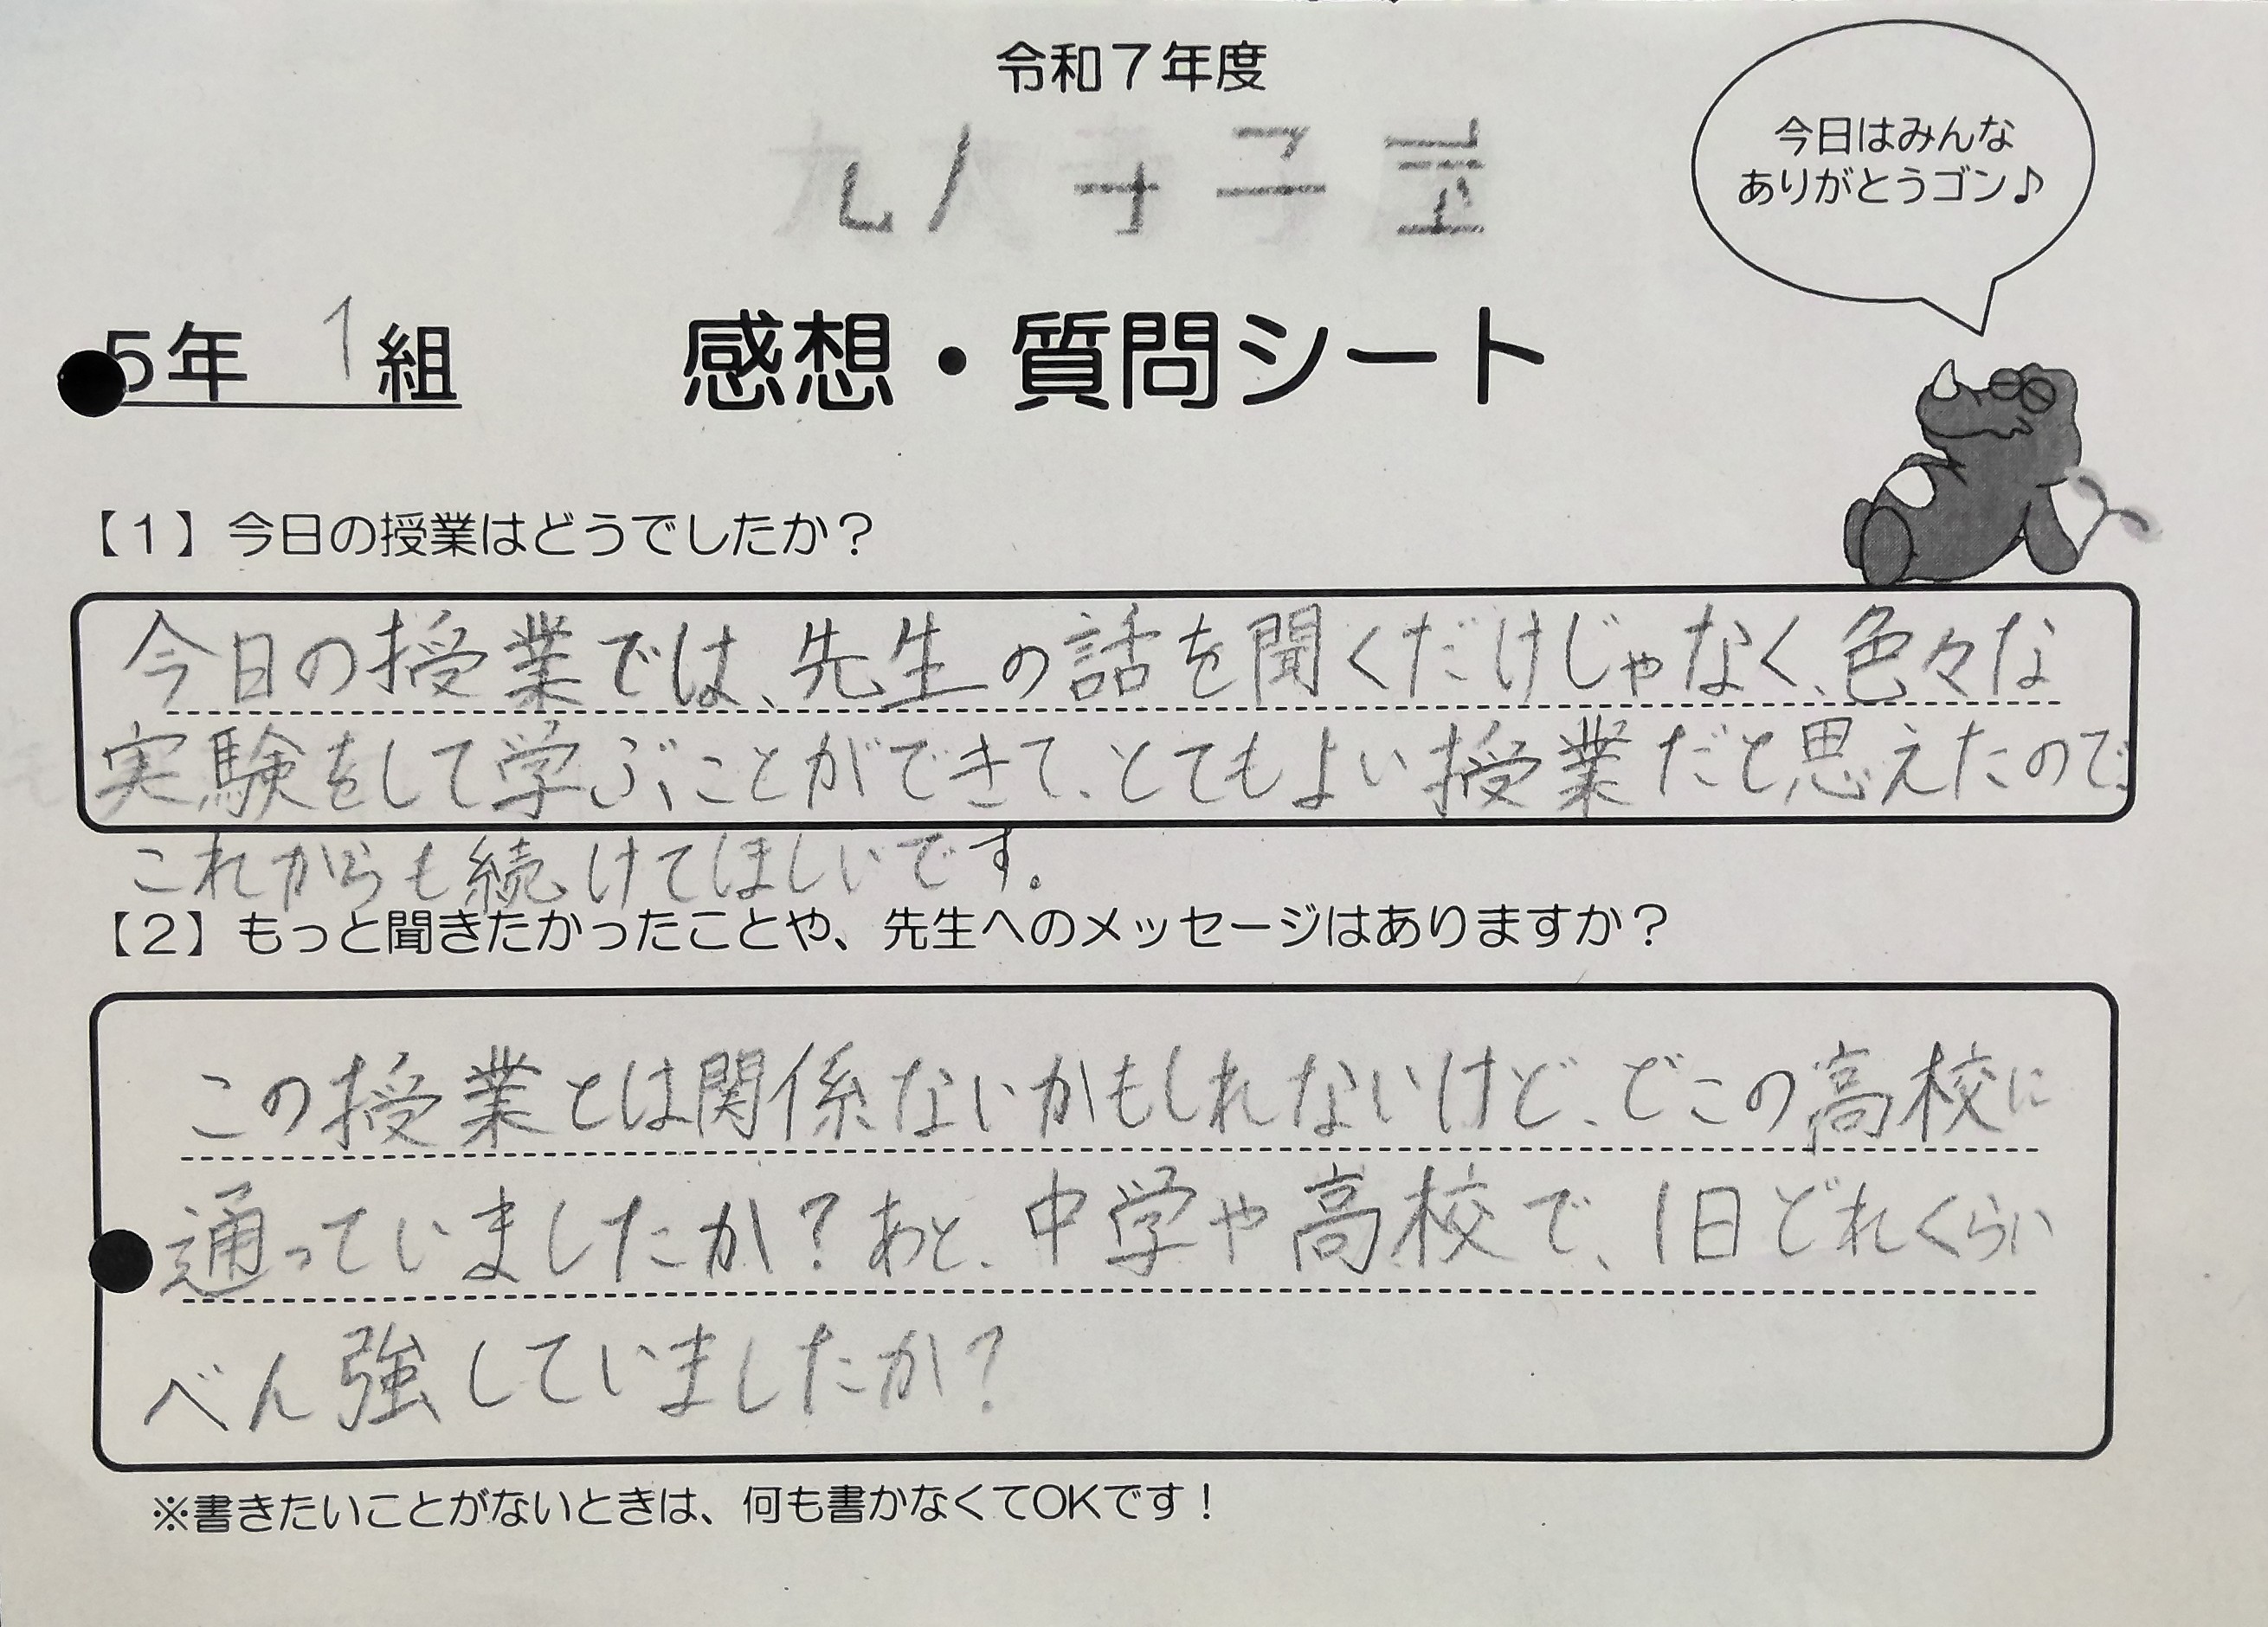 令和7年度
今日はみんな
ありがとうゴン♪
5年 1組
感想・質問シート
【1】今日の授業はどうでしたか？
今日の授業では、先生の話を聞くだけじゃなく、色々な
実験をして学ぶことができて、とてもよい授業だと思えたので、
これからも続けてほしいです。
【2】もっと聞きたかったことや、先生へのメッセージはありますか？
この授業とは関係ないかもしれないけど、どこの高校に
通っていましたか？あと、中学や高校で、1日どれくらい
べん強していましたか？
※書きたいことがないときは、何も書かなくてOKです！